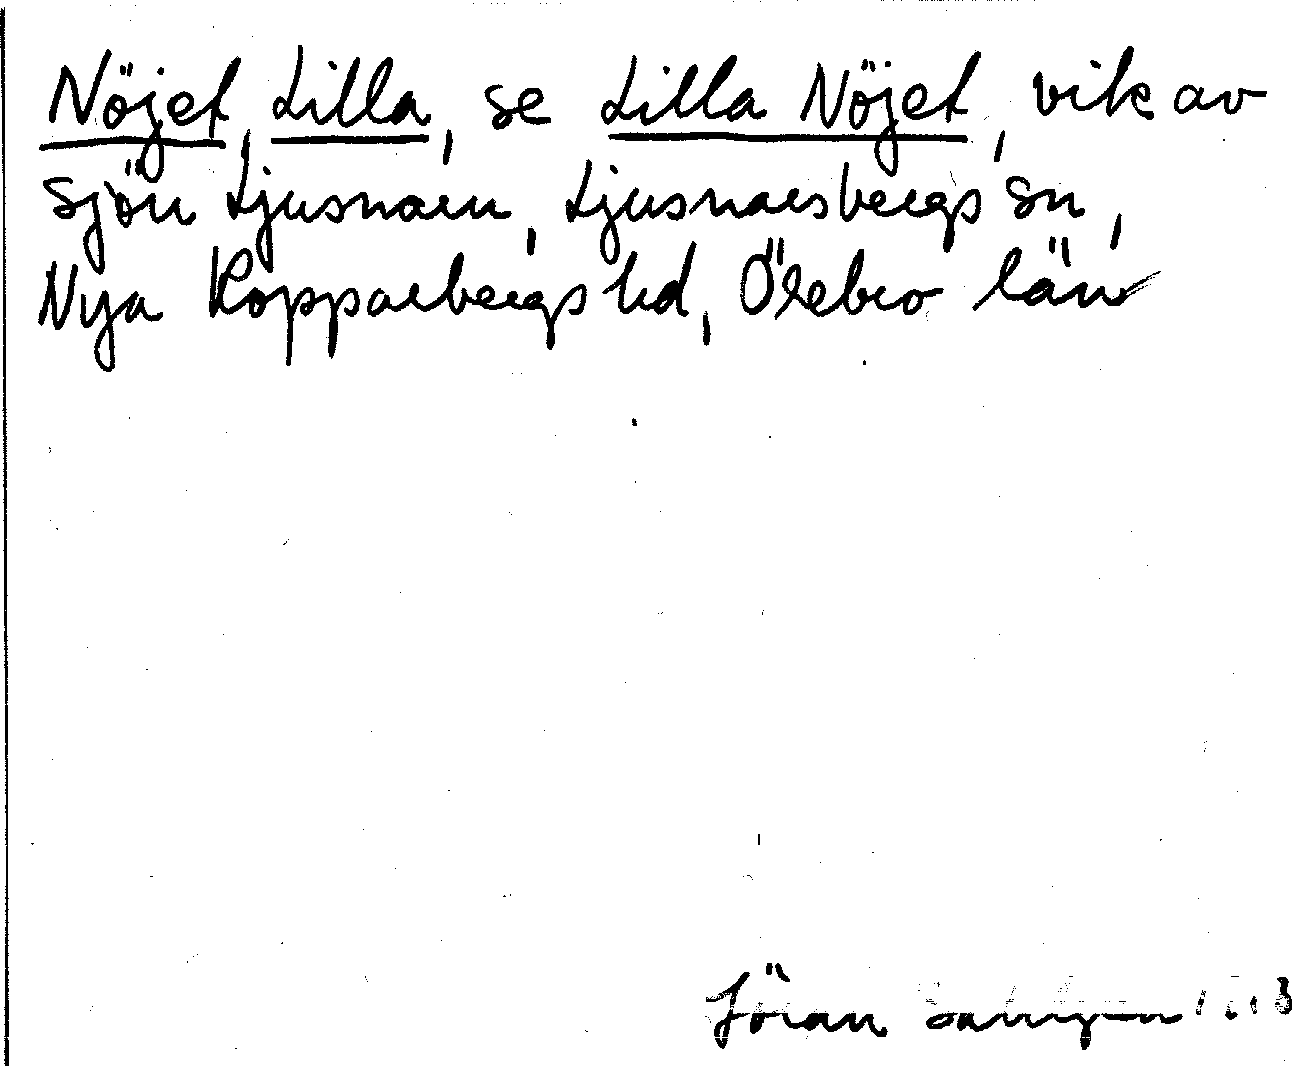 Nöjet, Lilla, se Lilla Nöjet, vik av
sjön Ljusnaren, Ljusnarsbergs sn,
Nya Kopparbergs hd, Örebro län
Jöran Sahlgren